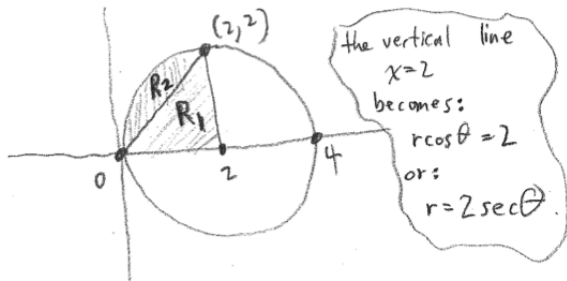 (2,2)
R2
R1
0
2
4
the vertical line
x=2
becomes:
rcosθ=2
or:
r=2secθ.